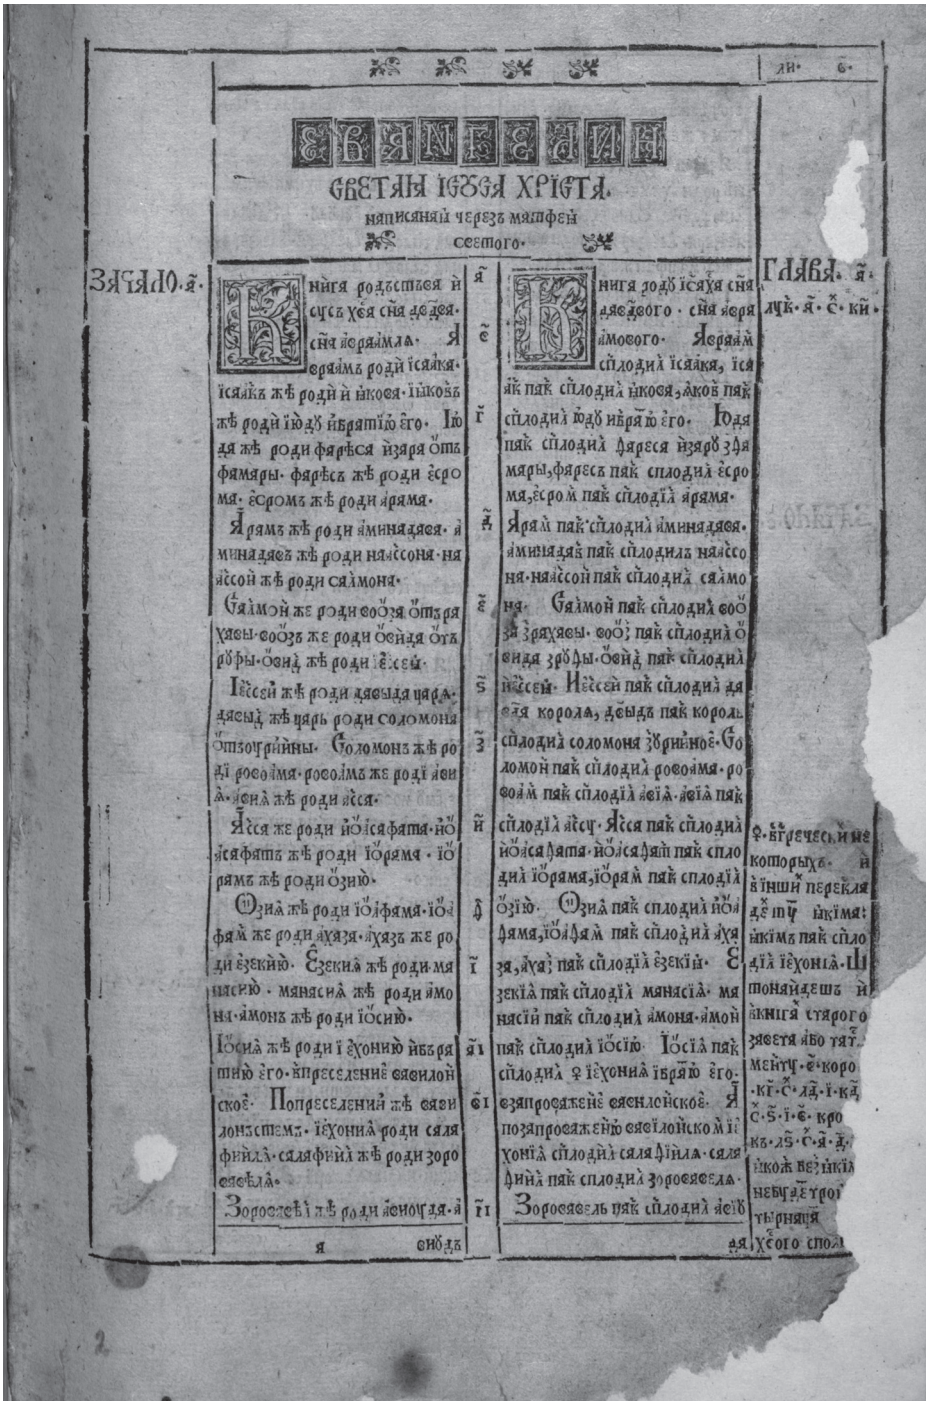 ли· є҃·
ЄВАНГЕЛИИ
СВЕТАЯ ІСУСА ХРІСТА.
написаная через матфея
светого·
ЗАЧАЛО·а҃·
ГЛАВА· а҃·
лук· г҃· кн҃·
Книга родъства и
сусъ хв҃а сн҃а дв҃два·
сн҃а авраамля· А
враамъ роди ісаака·
ісаакъ жѣ роди иякова· іяковъ
жѣ роди іюду ибратию его· Ію
да жѣ роди фарѣса изара отъ
фамары· фарѣсъ жѣ роди есро
ма· есромъ жѣ роди арама·
Арамъ жѣ роди аминадава· а
минадавъ жѣ роди наассона· на
ассон жѣ роди салмона·
Салмон же роди вооза отъра
хавы· воозъ же роди овида отъ
руфы· овид жѣ роди іессея·
Іессей жѣ роди давыда царя·
давыд жѣ царь роди соломона
отъоуриины· Соломонъ жѣ ро
ді ровоама· ровоамъ же роді ави
я· авия жѣ роди асса·
Асса же роди иоасафата· ио
асафатъ жѣ роди іорама· іо
рамъ жѣ роди озию·
Озия жѣ роди іоафама· іоа
фам же роди ахаза· ахазъ же ро
ди езекию· Езекия жѣ роди ма
насию· манасия жѣ роди амо
на· амонъ жѣ роди іосию·
Іосия жѣ роди і ехонию ибъра
тию его· впреселение вавилон
ское· Попреселении жѣ вави
лонъстемъ· іехония роди сала
фиила· салафиил жѣ роди зоро
вавеля·
Зоровавел жѣ роди авиоуда· а
а҃
в҃
г҃
д҃
є҃
ѕ҃
з҃
и҃
ѳ҃
і҃
а҃і
в҃і
г҃і
Книга роду іс҃аха сн҃а
давдвого· сн҃а авра
амового· Авраам
сплодил ісаака, іса
ак пак сплодил якова, яков пак
сплодил юду ибратю его· Юда
пак сплодил фареса изару зфа
мары, фаресъ пак сплодил есро
ма, есром пак сплодил арама·
Арам пак сплодил аминадава·
аминадав пак сплодилъ наассо
на· наассон пак сплодил салмо
на· Салмон пак сплодил воо
за зрахавы· вооз пак сплодил о
вида зруфы· овид пак сплодил
иессея· Иессеи пак сплодил да
вда короля, двыдъ пак король
сплодил соломона зуриеное· Со
ломон пак сплодил ровоама· ро
воам пак сплодил авія· авія пак
сплодил ассу· Асса пак сплодил
иоасафата· иоасафат пак спло
дил іорама, іорам пак сплодил
озію· Озия пак сплодил иоа
фама, іоафам пак сплодил аха
за, ахаз пак сплодил езекіи· Е
зекія пак сплодил манасія· ма
насіи пак сплодил амона· амон
пак сплодил іосію· Іосія пак
сплодил іехонія ібраю его·
взапроважене вавилонское· А
позапроваженю вавілонском іе
хонія сплодил салафиила· сала
фиил пак сплодил зоровавеля·
Зоровавель пак сплодил авіу
вгреческии не
которыхъ· и
вінши перекла
кімъ пак спло
діл іехонія· Ш
тонаидешъ и
вкнига старого
завета або тат
небуде трои
тырнаца
хсвого спол
а
виудъ
да,
2